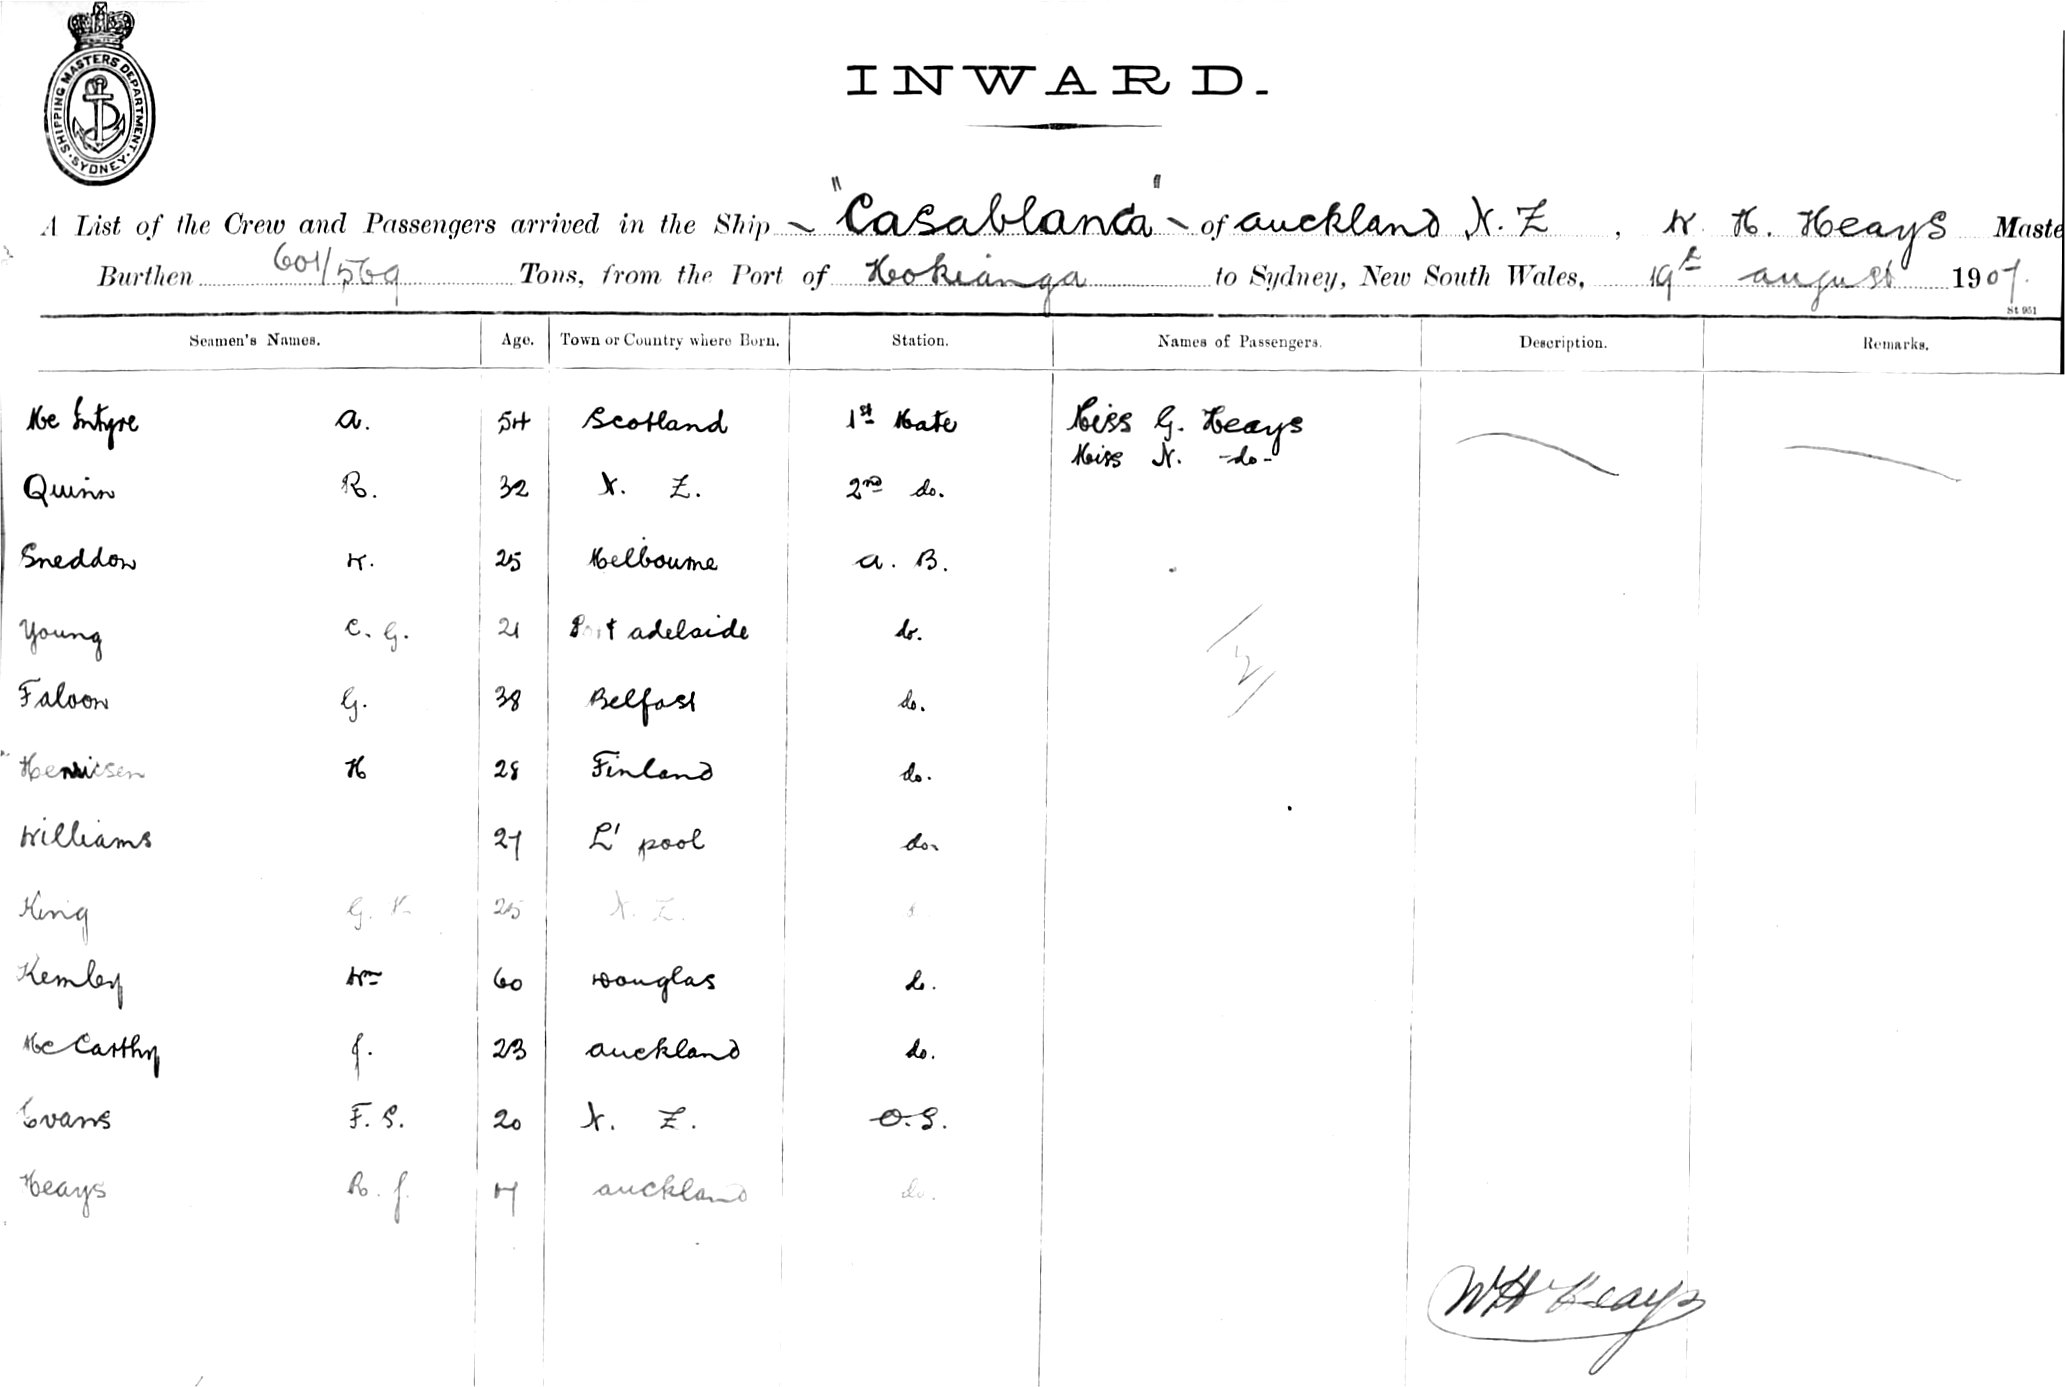 SHIPPING MASTERS DEPARTMENT · SYDNEY ·
INWARD.
A List of the Crew and Passengers arrived in the Ship "Casablanca" of Auckland N. Z, W. H. Heays Maste
Burthen 601/569 Tons, from the Port of Hokianga to Sydney, New South Wales, 19th August 1907.
St 951
Seamen's Names. Age. Town or Country where Born. Station. Names of Passengers. Description. Remarks.
Mc Intyre A. 54 Scotland 1st Mate Miss G. Heays
Miss N. -do-
Quinn R. 32 N. Z. 2nd do.
Sneddon W. 25 Melbourne A. B.
Young C. G. 21 Port Adelaide do.
2
Faloon G. 38 Belfast do.
Henricsen H 28 Finland do.
Williams 27 L'pool do.
King G. 25 N. Z.
Kemley Wm 60 Douglas do.
McCarthy J. 23 Auckland do.
Evans F. S. 20 N. Z. O.S.
Heays R. J. 17 Auckland do.
WH Heays